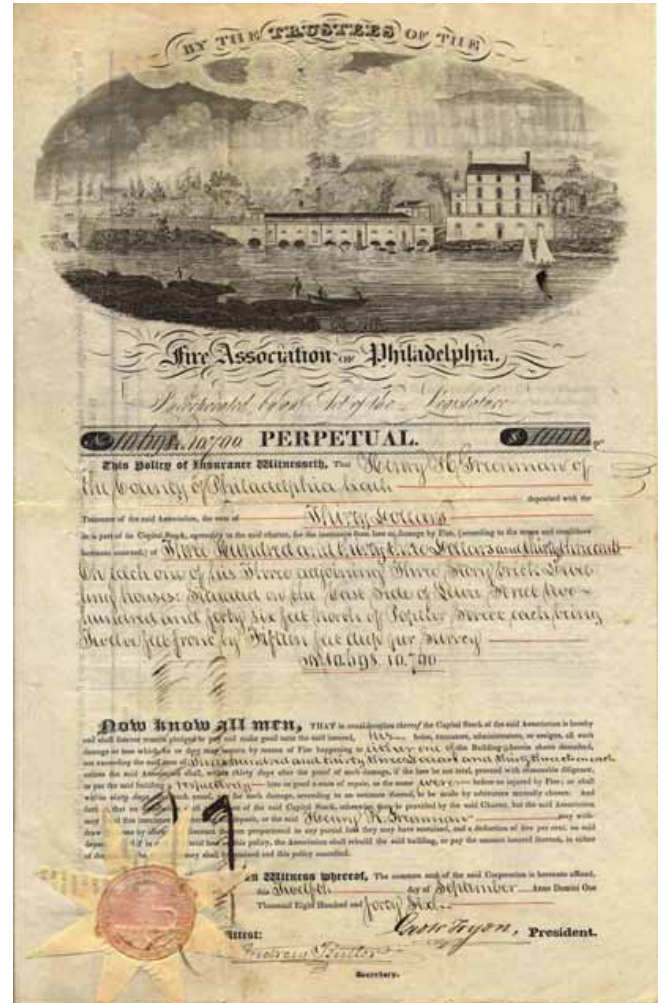 BY THE TRUSTEES OF THE
Fire Association OF Philadelphia.
Incorporated by an Act of the Legislature
No. 10,698. 10,700 PERPETUAL. $ 1000
This Policy of Insurance Witnesseth, That Henry R.
the County of Philadelphia hath deposited with the
Treasurer of the said Association, the sum of Thirty Dollars
as a part of its Capital Stock, agreeably to the said charter, for the insurance from loss or damage by Fire, (according to the terms and conditions
hereunto annexed,) of Three hundred and thirty three Dollars and thirty three cents
On each one of his Three adjoining Three Story brick Dwel
ling houses: Situated on the East Side of Lewis Street two
hundred and forty six feet North of Poplar Street each being
Twelve feet front by Fifteen feet deep per Survey
No. 10,698. 10,700
Now know all men, THAT in consideration thereof the Capital Stock of the said Association is hereby
and shall forever remain pledged to pay and make good unto the said insured, His heirs, executors, administrators, or assigns, all such
damage or loss which he or they may sustain by means of Fire happening to either one of the Building herein above described,
not exceeding the said sum of Three hundred and thirty three Dollars and thirty three cents each
unless the said Association shall, within thirty days after the proof of such damage, if the loss be not total, proceed with reasonable diligence,
to put the said building respectively into as good a state of repair, as the same were before so injured by Fire; or shall
within sixty days such for such damage, according to an estimate thereof, to be made by arbitrators mutually chosen. And
that no of the said Capital Stock, otherwise than is provided by the said Charter, but the said Association
may this insurance deposit, or the said Henry R. may with-
draw the same by discount proportioned to any partial loss they may have sustained, and a deduction of five per cent. on said
if in total loss this policy, the Association shall rebuild the said building, or pay the amount insured thereon, in either
of shall be retained and this policy cancelled.
In Witness whereof, The common seal of the said Corporation is hereunto affixed,
this Twelfth day of September Anno Domini One
Thousand Eight Hundred and forty Six
Attest: President.
Andrew Butler
Secretary.